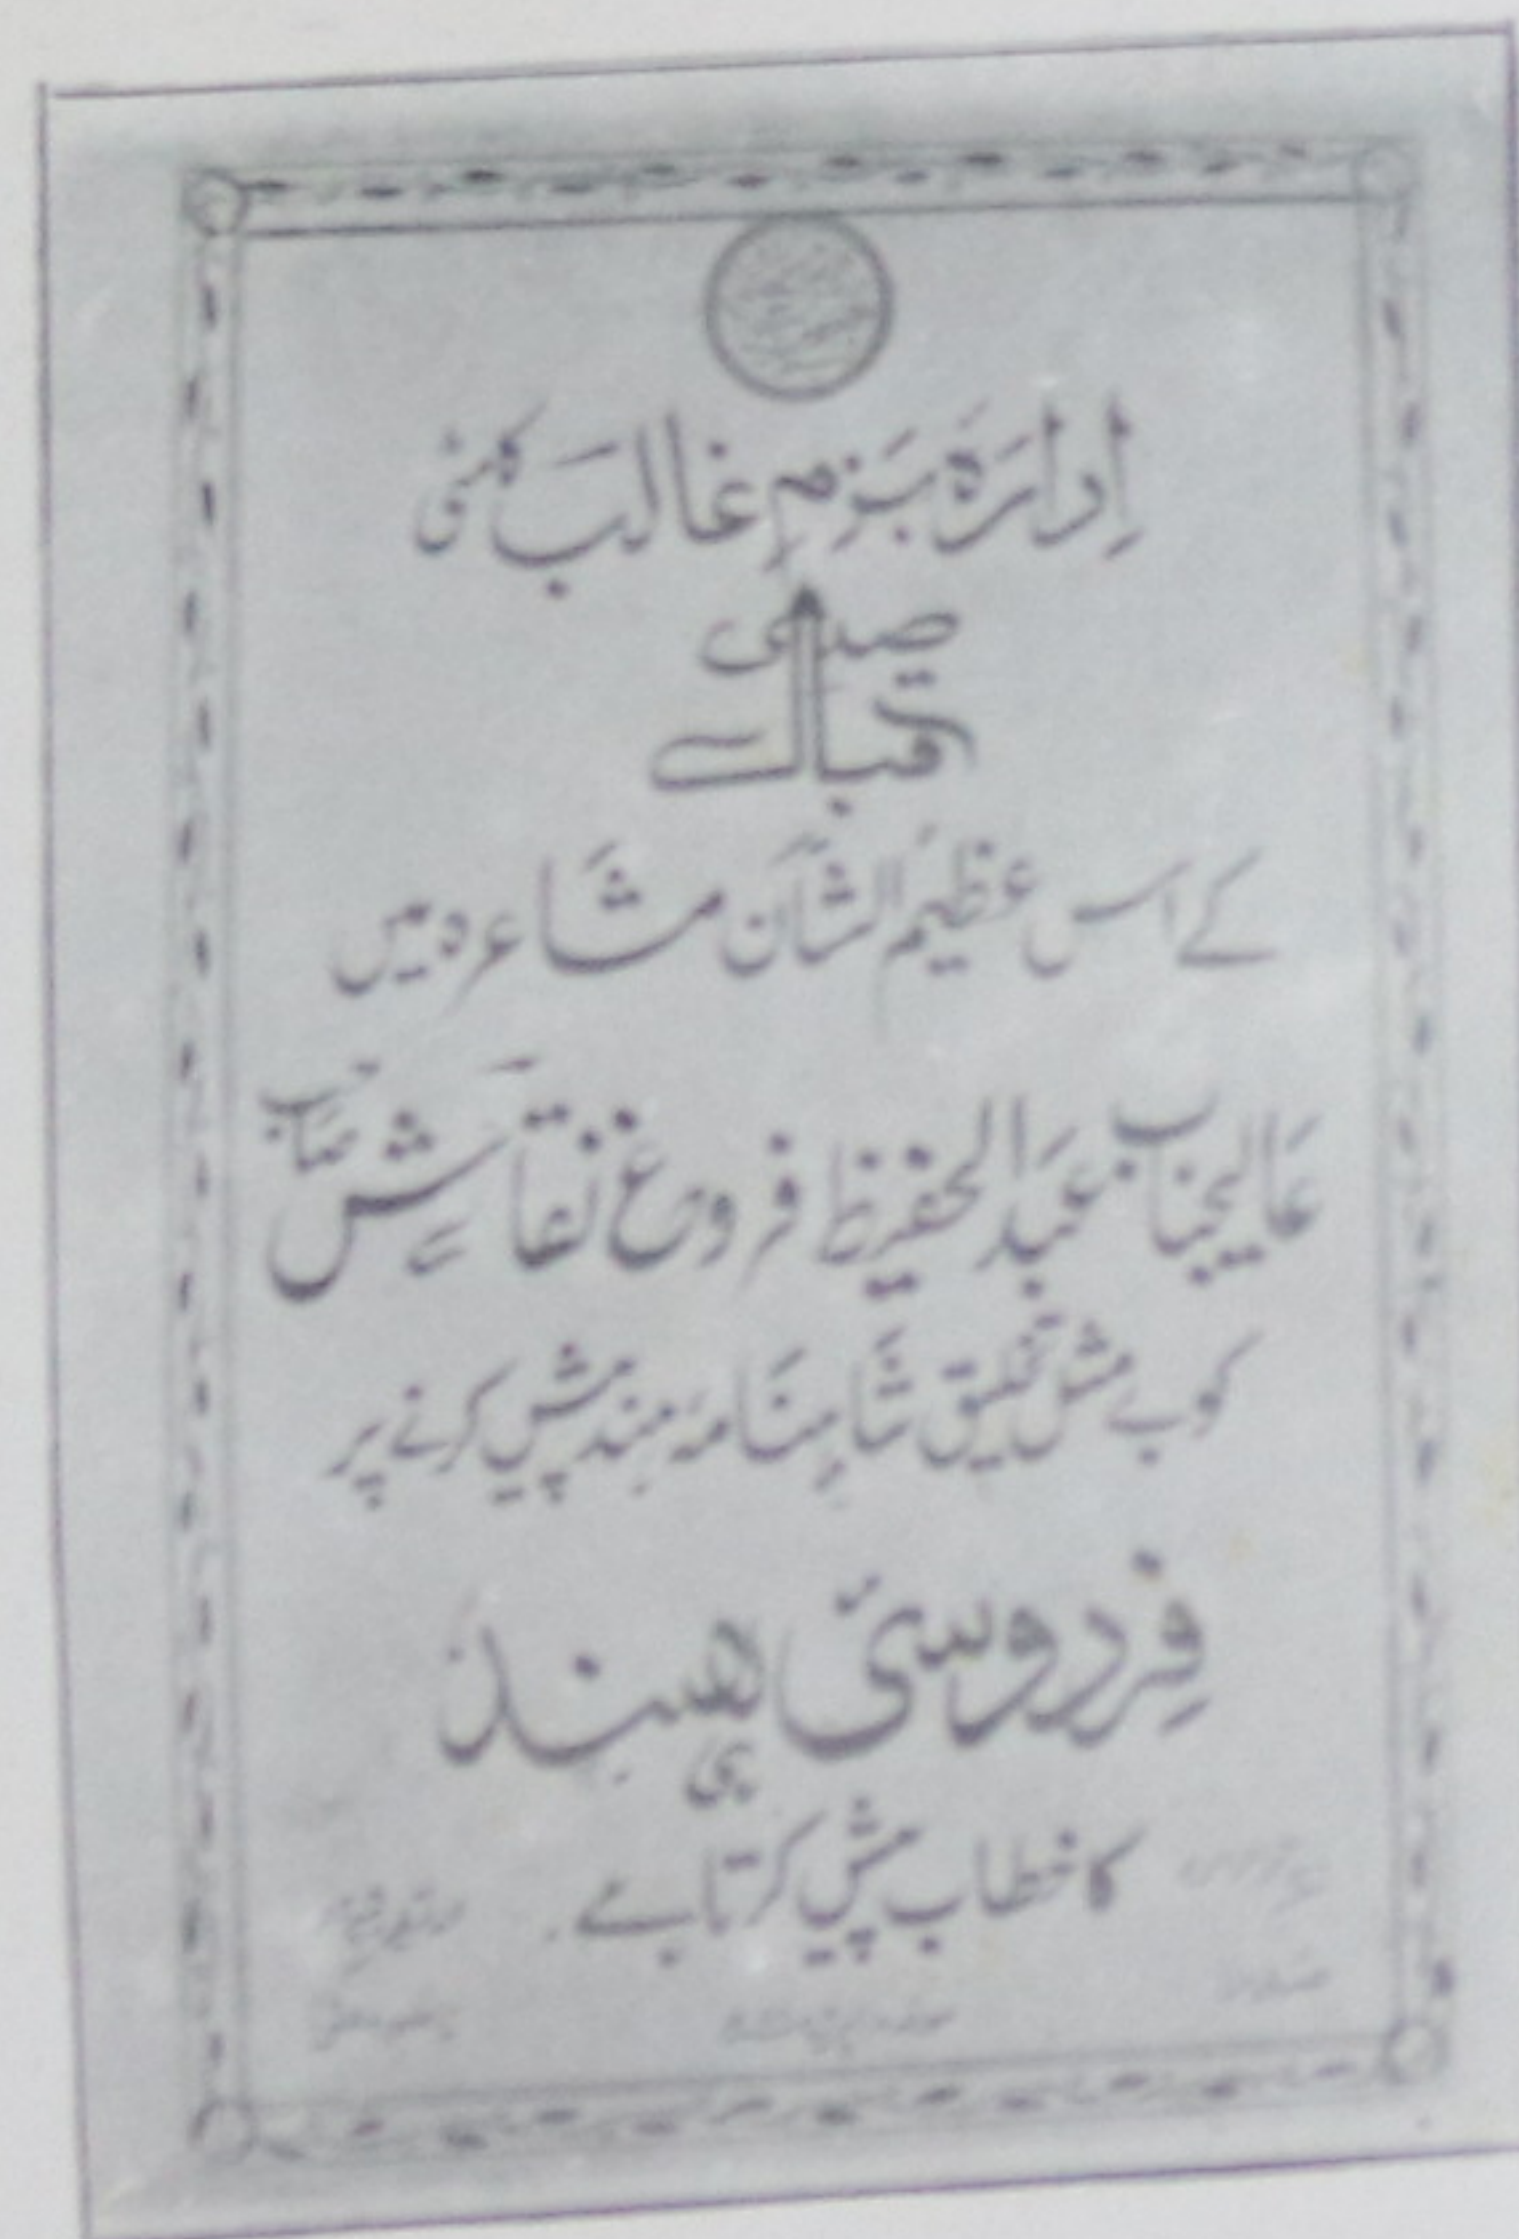 ادارہ بزمِ غالب کامٹی
صدی
اقبال
کے اس عظیم الشان مشاعرہ میں
عالیجناب عبدالحفیظ فروغ نقاش صاحب
کو بے مثل تخلیق شاہنامہ ہند پیش کرنے پر
فردوسیٔ ہند
کا خطاب پیش کرتا ہے۔